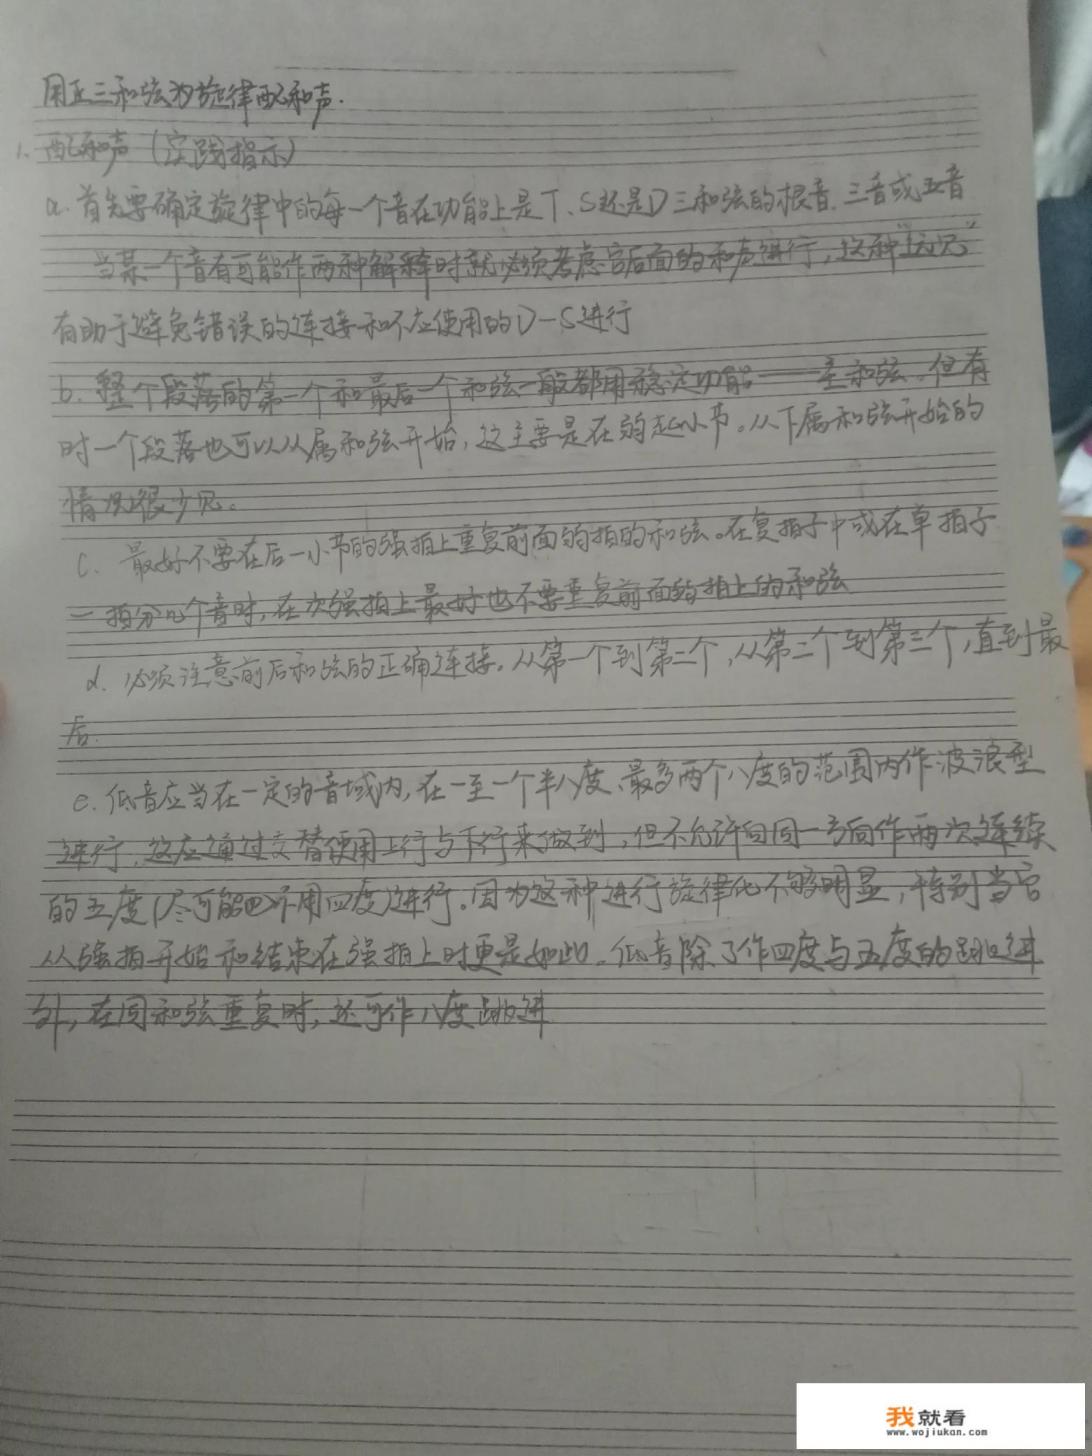 用正三和弦为旋律配和声.
1. 配和声 (实践指示)
a. 首先要确定旋律中的每一个音在功能上是T、S还是D三和弦的根音.三音或五音
当某一个音有可能作两种解释时就必须考虑它后面的和声进行，这种"远见"
有助于避免错误的连接和不应使用的D—S进行
b. 整个段落的第一个和最后一个和弦一般都用稳定功能——主和弦.但有
时一个段落也可以从属和弦开始，这主要是在弱起小节。从下属和弦开始的
情况很少见。
C. 最好不要在后一小节的强拍上重复前面弱拍的和弦。在复拍子中或在单拍子
一拍分几个音时，在次强拍上最好也不要重复前面弱拍上的和弦
d. 必须注意前后和弦的正确连接。从第一个到第二个，从第二个到第三个，直到最
后.
e. 低音应当在一定的音域内，在一至一个半八度、最多两个八度的范围内作波浪型
进行，这应通过交替使用上行与下行来做到，但不允许向同一方向作两次连续
的五度(尽可能也不用四度)进行。因为这种进行旋律化不够明显，特别当它
从强拍开始和结束在强拍上时更是如此。低音除了作四度与五度的跳进
外，在同和弦重复时，还可作八度跳进
我就看
www.wojiukan.com